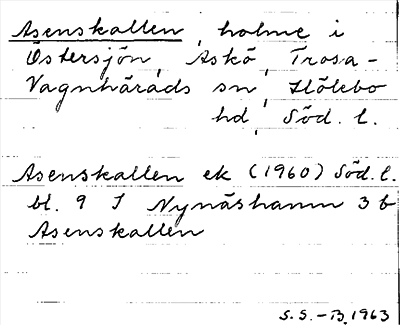 Asenskallen, holme i
Östersjön, Askö, Trosa-
Vagnhärads sn, Hölebo
hd, Söd. l.
Asenskallen ek (1960) Söd. l.
bl. 9 I Nynäshamn 3 b
Asenskallen
S.S.-B. 1963